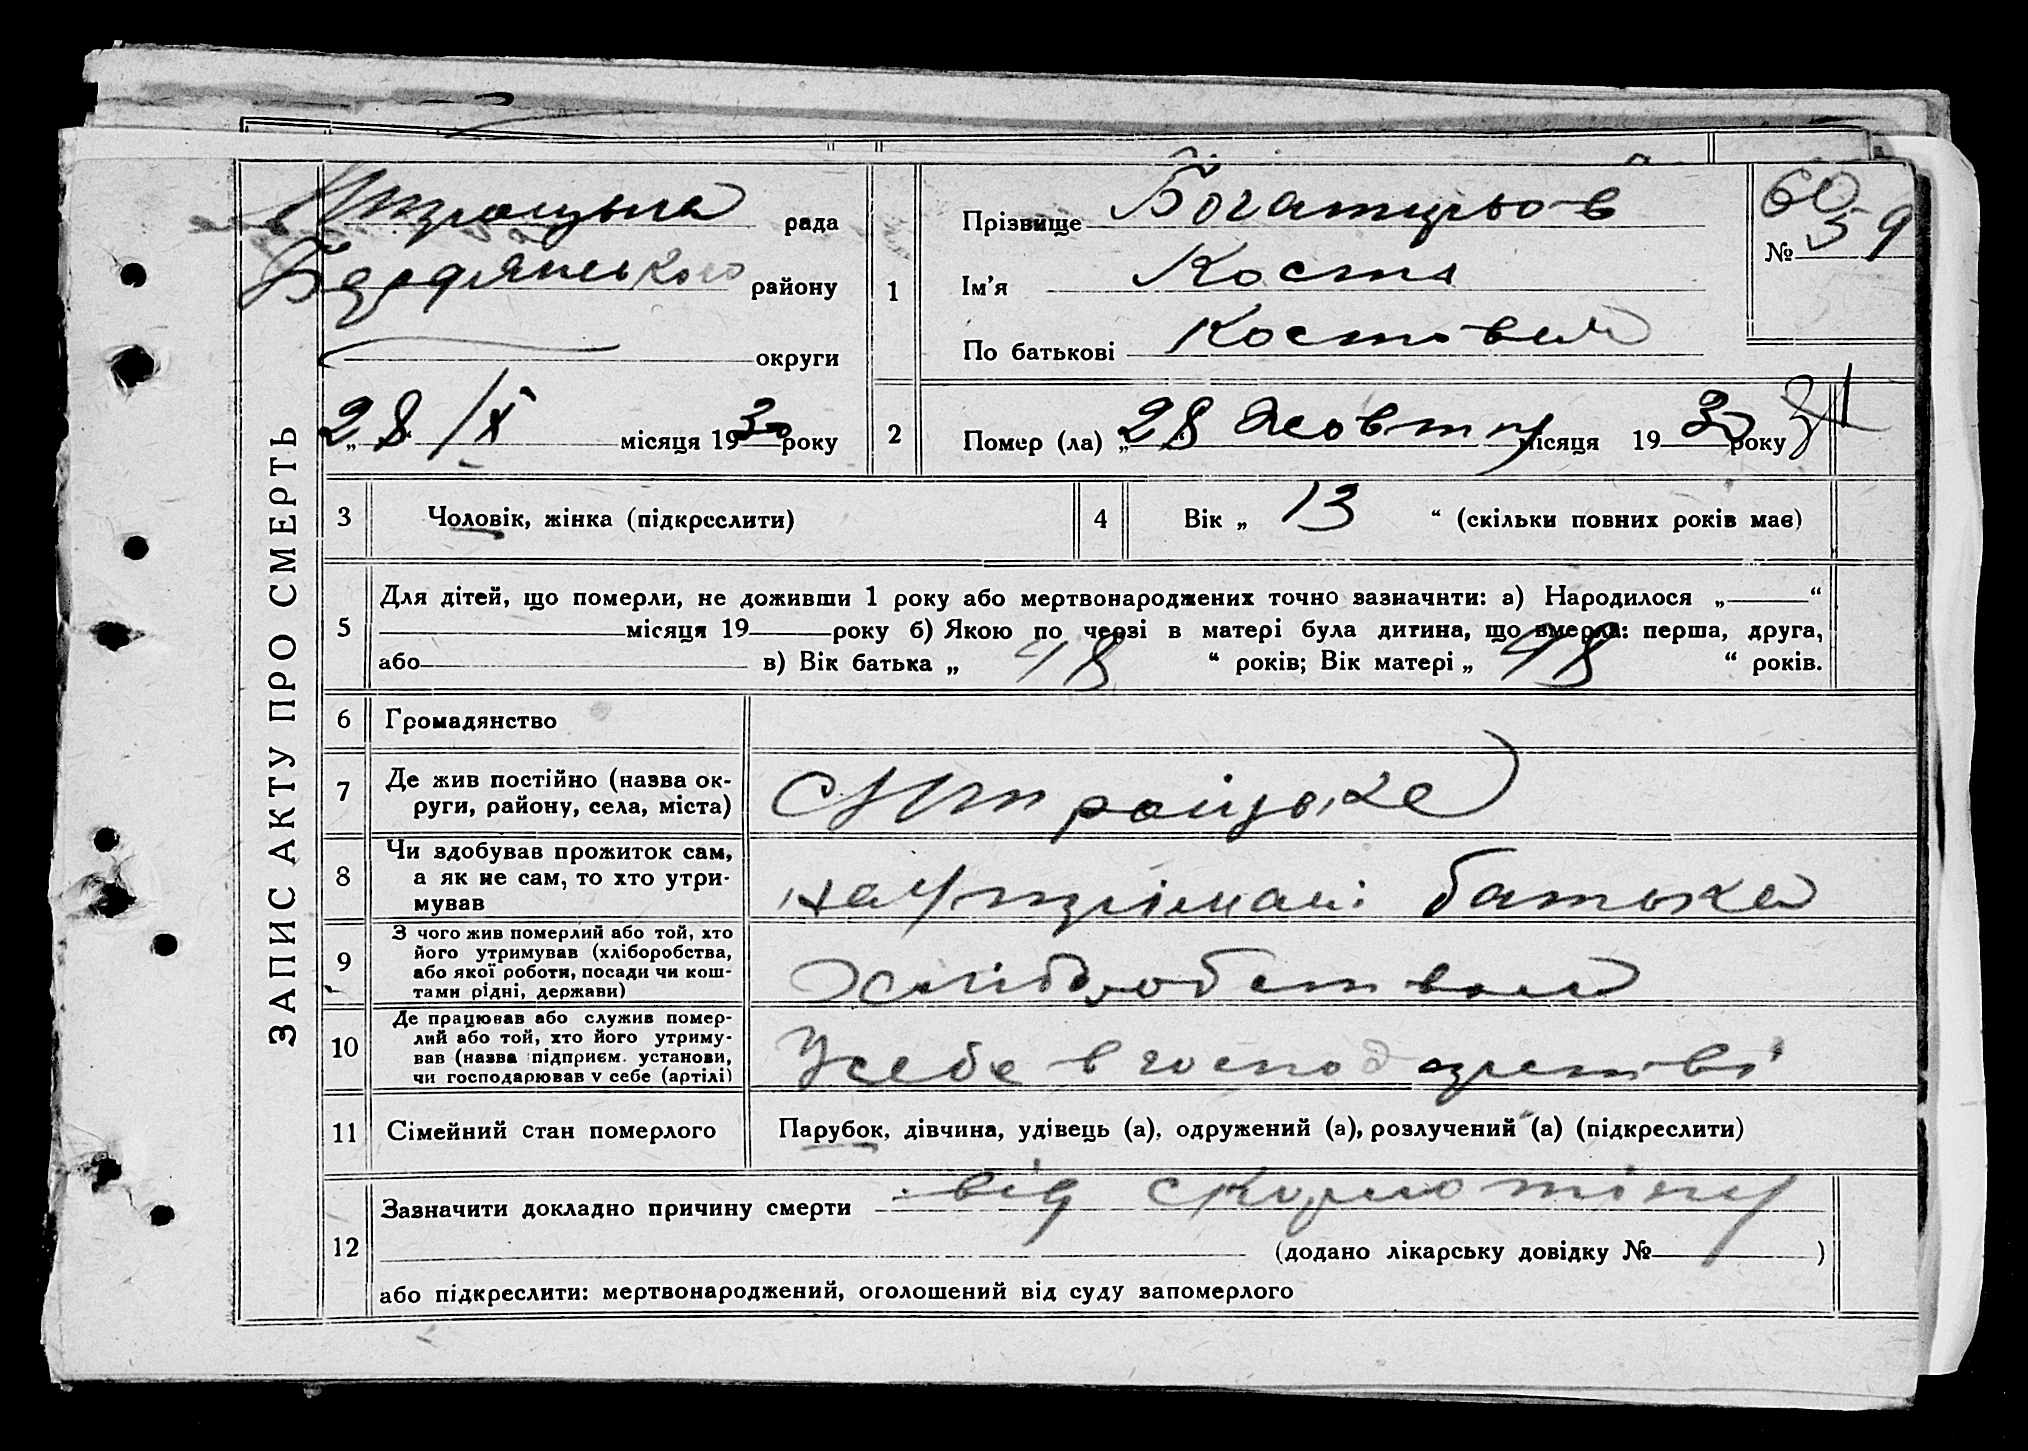 ЗАПИС АКТУ ПРО СМЕРТЬ
рада
Бердянського району
округи
„28/X місяця 1930 року
1
Прізвище Богатирьов
Ім'я Костя
По батькові Костович
60
№ 59
2
Помер (ла) „28 Жовтня місяця 1930 року
31
3
Чоловік, жінка (підкреслити)
4
Вік „ 13 “ (скільки повних років має)
5
Для дітей, що померли, не доживши 1 року або мертвонароджених точно зазначити: а) Народилося „ “
місяця 19 року б) Якою по черзі в матері була дитина, що вмерла: перша, друга,
або в) Вік батька „ 48 “ років; Вік матері „ 48 “ років.
6
Громадянство
7
Де жив постійно (назва ок-
руги, району, села, міста)
8
Чи здобував прожиток сам,
а як не сам, то хто утри-
мував
на утрімані батька
9
З чого жив померлий або той, хто
його утримував (хліборобства,
або якої роботи, посади чи кош-
тами рідні, держави)
Хліборобством
10
Де працював або служив помер-
лий або той, хто його утриму-
вав (назва підприєм. установи,
чи господарював у себе (артілі)
У себе в господарстві
11
Сімейний стан померлого
Парубок, дівчина, удівець (а), одружений (а), розлучений (а) (підкреслити)
12
Зазначити докладно причину смерти від
(додано лікарську довідку № )
або підкреслити: мертвонароджений, оголошений від суду запомерлого